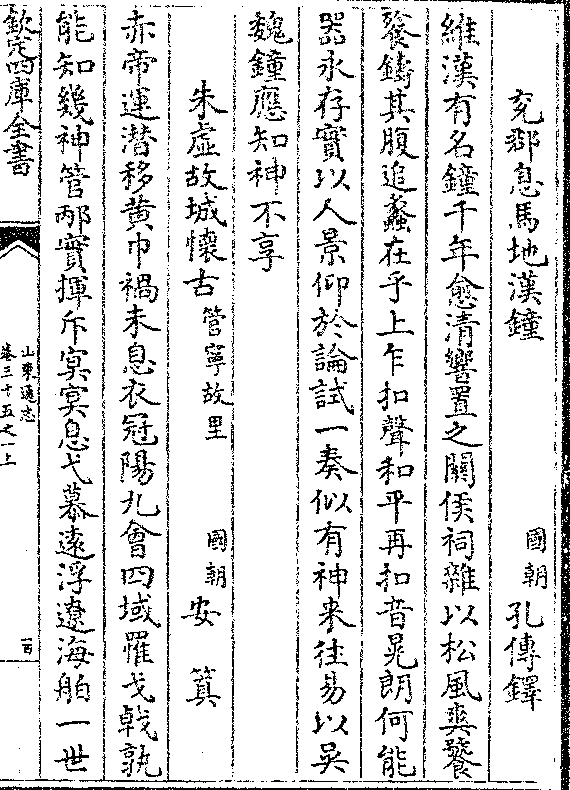 兖郡息馬地漢鐘　國朝孔傳鐸
維漢有名鐘千年愈清響置之關侯祠雜以松風爽饕
餮鑄其腹追蠡在乎上乍扣聲和平再扣音晃朗何能
器永存實以人景仰於論試一奏似有神來往易以吴
魏鐘應知神不享
朱虚故城懐古管寧故里　國朝安箕
赤帝運潜移黄巾禍未息衣冠陽九會四域罹戈㦸孰
能知幾神管邴實揮斥冥冥息弋慕逺浮遼海舶一世
欽定四庫全書
山東通志
卷三十五之一上
一百